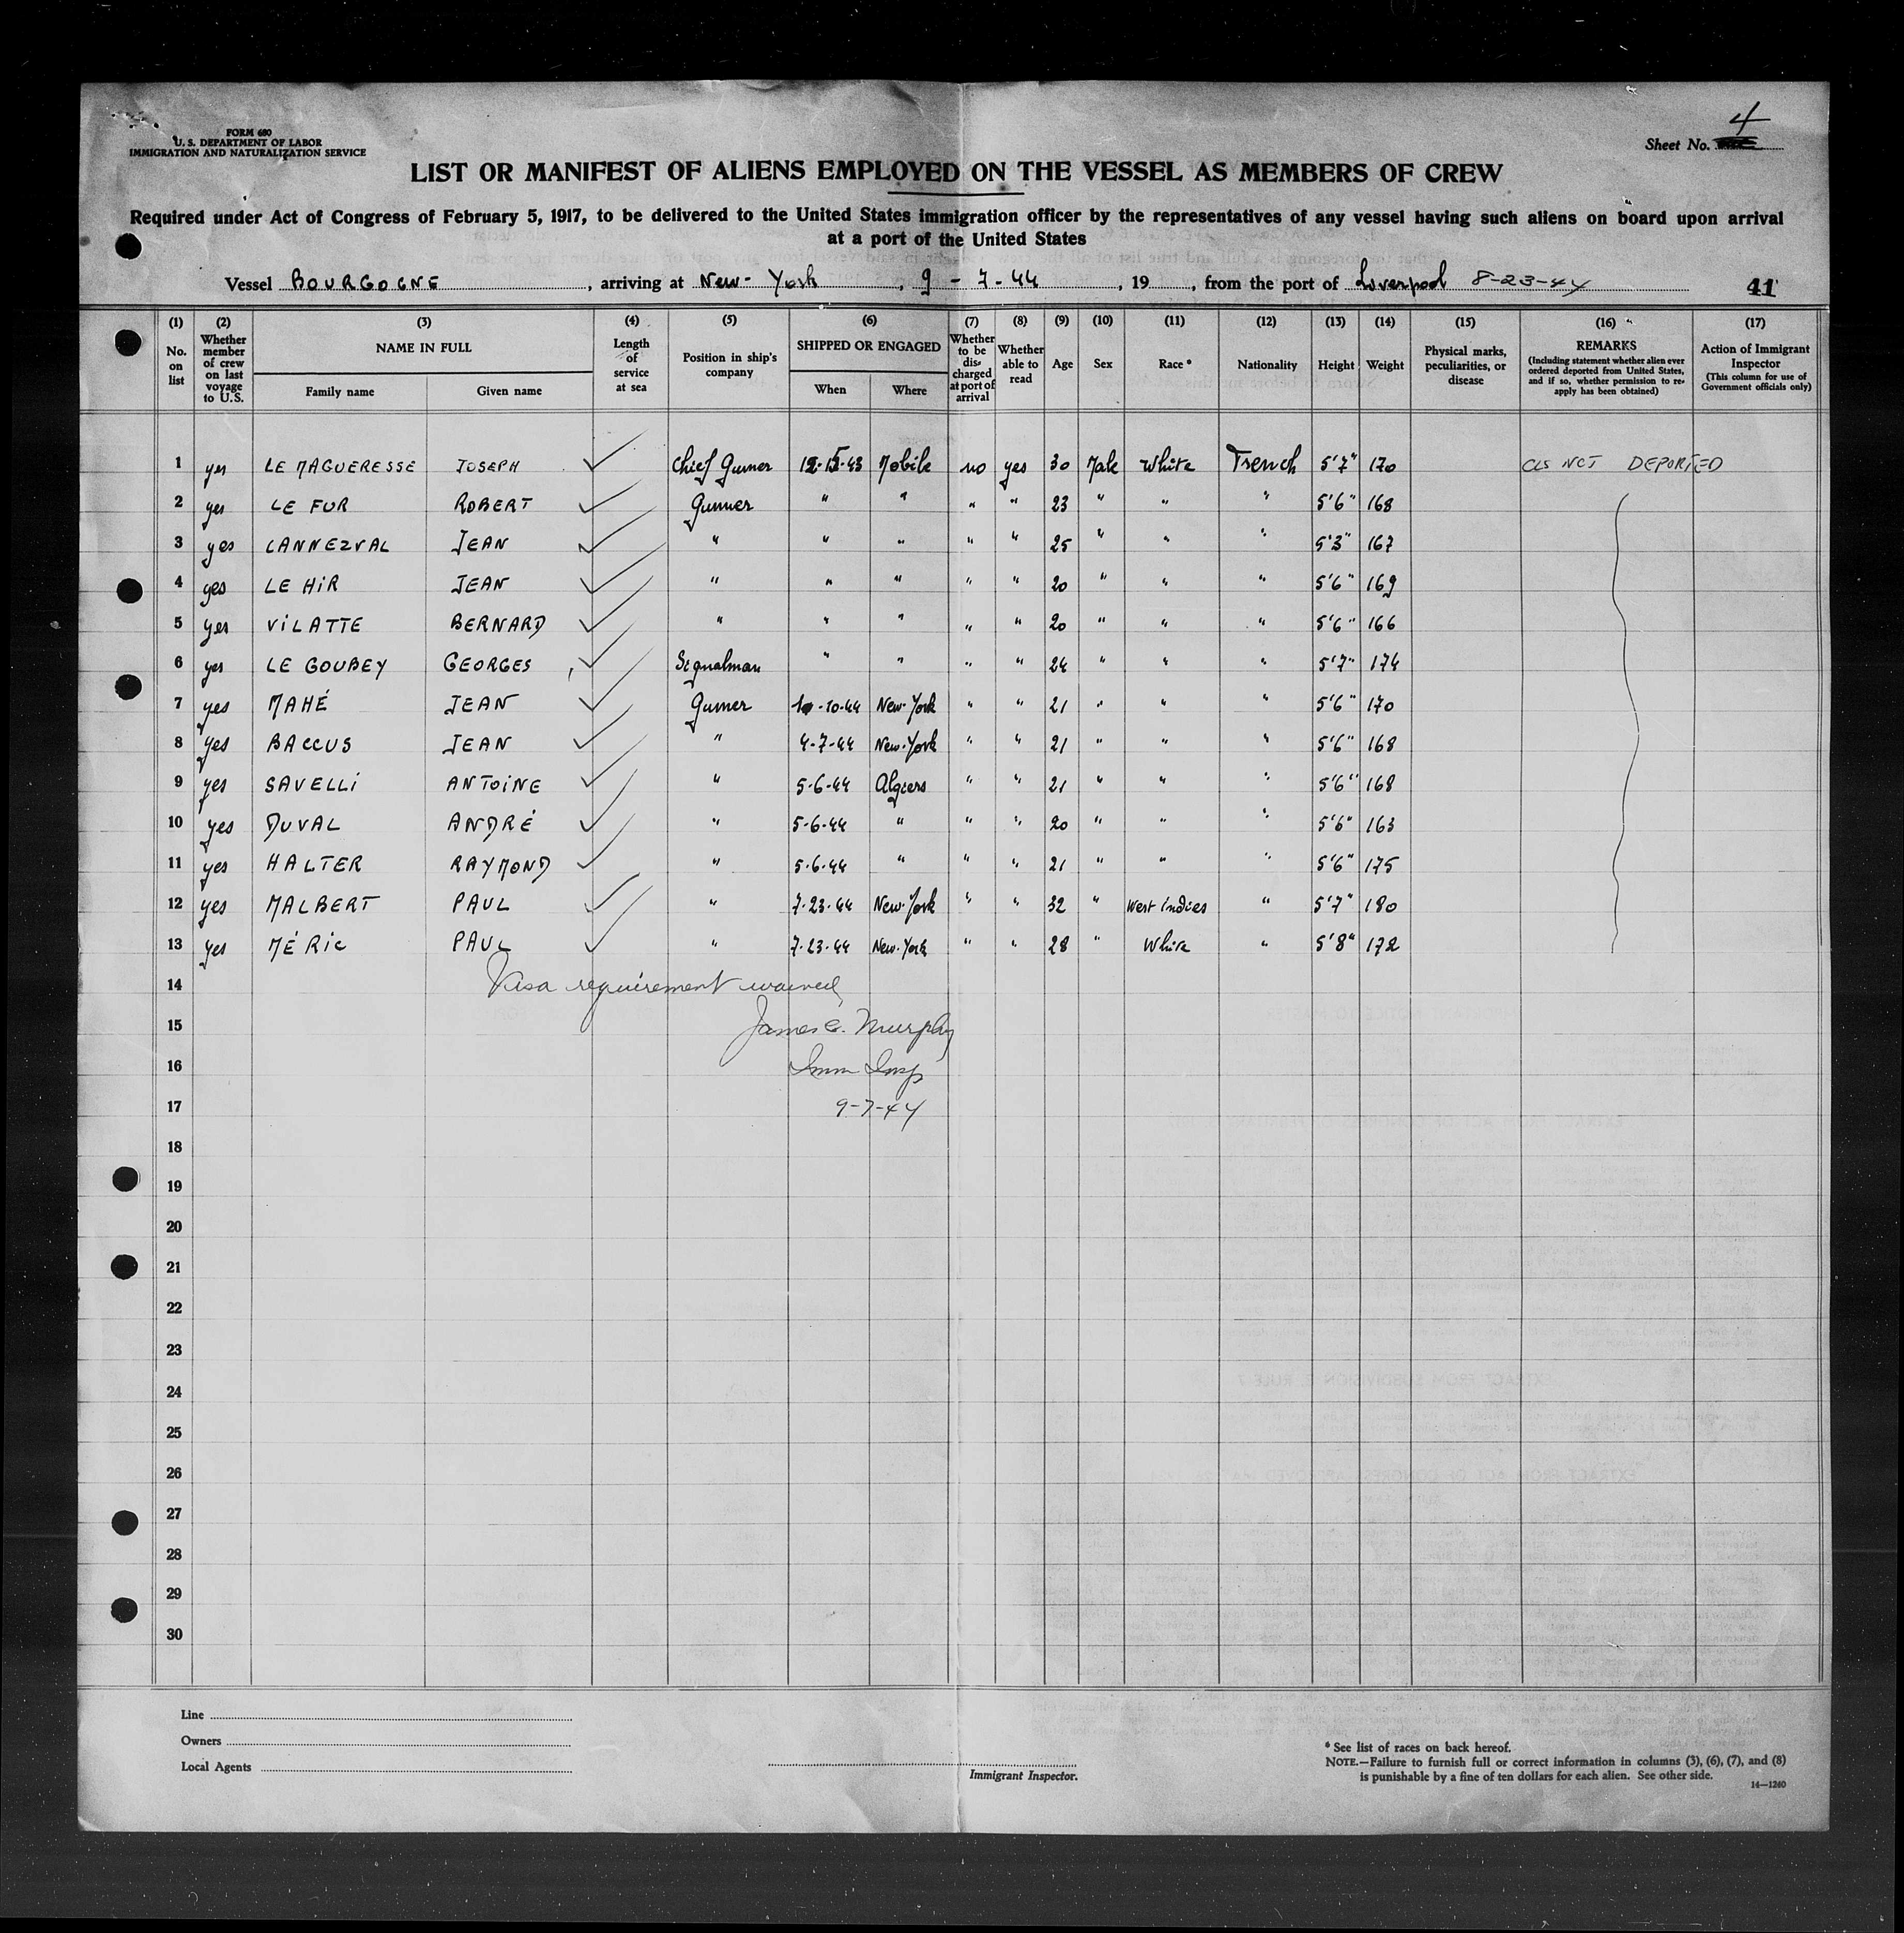 FORM 680
U. S. DEPARTMENT OF LABOR
IMMIGRATION AND NATURALIZATION SERVICE
Sheet No. 4
LIST OR MANIFEST OF ALIENS EMPLOYED ON THE VESSEL AS MEMBERS OF CREW
Required under Act of Congress of February 5, 1917, to be delivered to the United States immigration officer by the representatives of any vessel having such aliens on board upon arrival
at a port of the United States
Vessel BOURGOGNE, arriving at New-York, 9-7-44, 19, from the port of Liverpool 8-23-44 41
(1) No. on list
(2) Whether member of crew on last voyage to U.S.
(3) NAME IN FULL Family name Given name
(4) Length of service at sea
(5) Position in ship's company
(6) SHIPPED OR ENGAGED When Where
(7) Whether to be discharged at port of arrival
(8) Whether able to read
(9) Age
(10) Sex
(11) Race *
(12) Nationality
(13) Height
(14) Weight
(15) Physical marks, peculiarities, or disease
(16) REMARKS (Including statement whether alien ever ordered deported from United States, and if so, whether permission to reapply has been obtained)
(17) Action of Immigrant Inspector (This column for use of Government officials only)
1 yes LE MAGUERESSE JOSEPH Chief Gunner 12-15-43 Mobile no yes 30 Male White French 5'7" 170 NOT DEPORTED
2 yes LE FUR ROBERT Gunner " " " " 23 " " " 5'6" 168
3 yes LANNEZVAL JEAN " " " " " 25 " " " 5'3" 167
4 yes LE HiR JEAN " " " " " 20 " " " 5'6" 169
5 yes ViLATTE BERNARD " " " " " 20 " " " 5'6" 166
6 yes LE GOUBEY GEORGES Signalman " " " " 24 " " " 5'7" 174
7 yes MAHÉ JEAN Gunner 10-10-44 New-York " " 21 " " " 5'6" 170
8 yes BACCUS JEAN " 4-7-44 New-York " " 21 " " " 5'6" 168
9 yes SAVELLi ANTOiNE " 5-6-44 Algiers " " 21 " " " 5'6" 168
10 yes DUVAL ANDRÉ " 5-6-44 " " " 20 " " " 5'6" 163
11 yes HALTER RAYMOND " 5-6-44 " " " 21 " " " 5'6" 175
12 yes MALBERT PAUL " 7-23-44 New-York " " 32 " West indies " 5'7" 180
13 yes MÉRiC PAUL " 7-23-44 New-York " " 28 " White " 5'8" 172
14 Visa requirement waived
15 James C. Murphy
16 Imm Insp
17 9-7-44
18
19
20
21
22
23
24
25
26
27
28
29
30
Line
Owners
Local Agents
Immigrant Inspector.
* See list of races on back hereof.
NOTE.—Failure to furnish full or correct information in columns (3), (6), (7), and (8)
is punishable by a fine of ten dollars for each alien. See other side.
14—1240